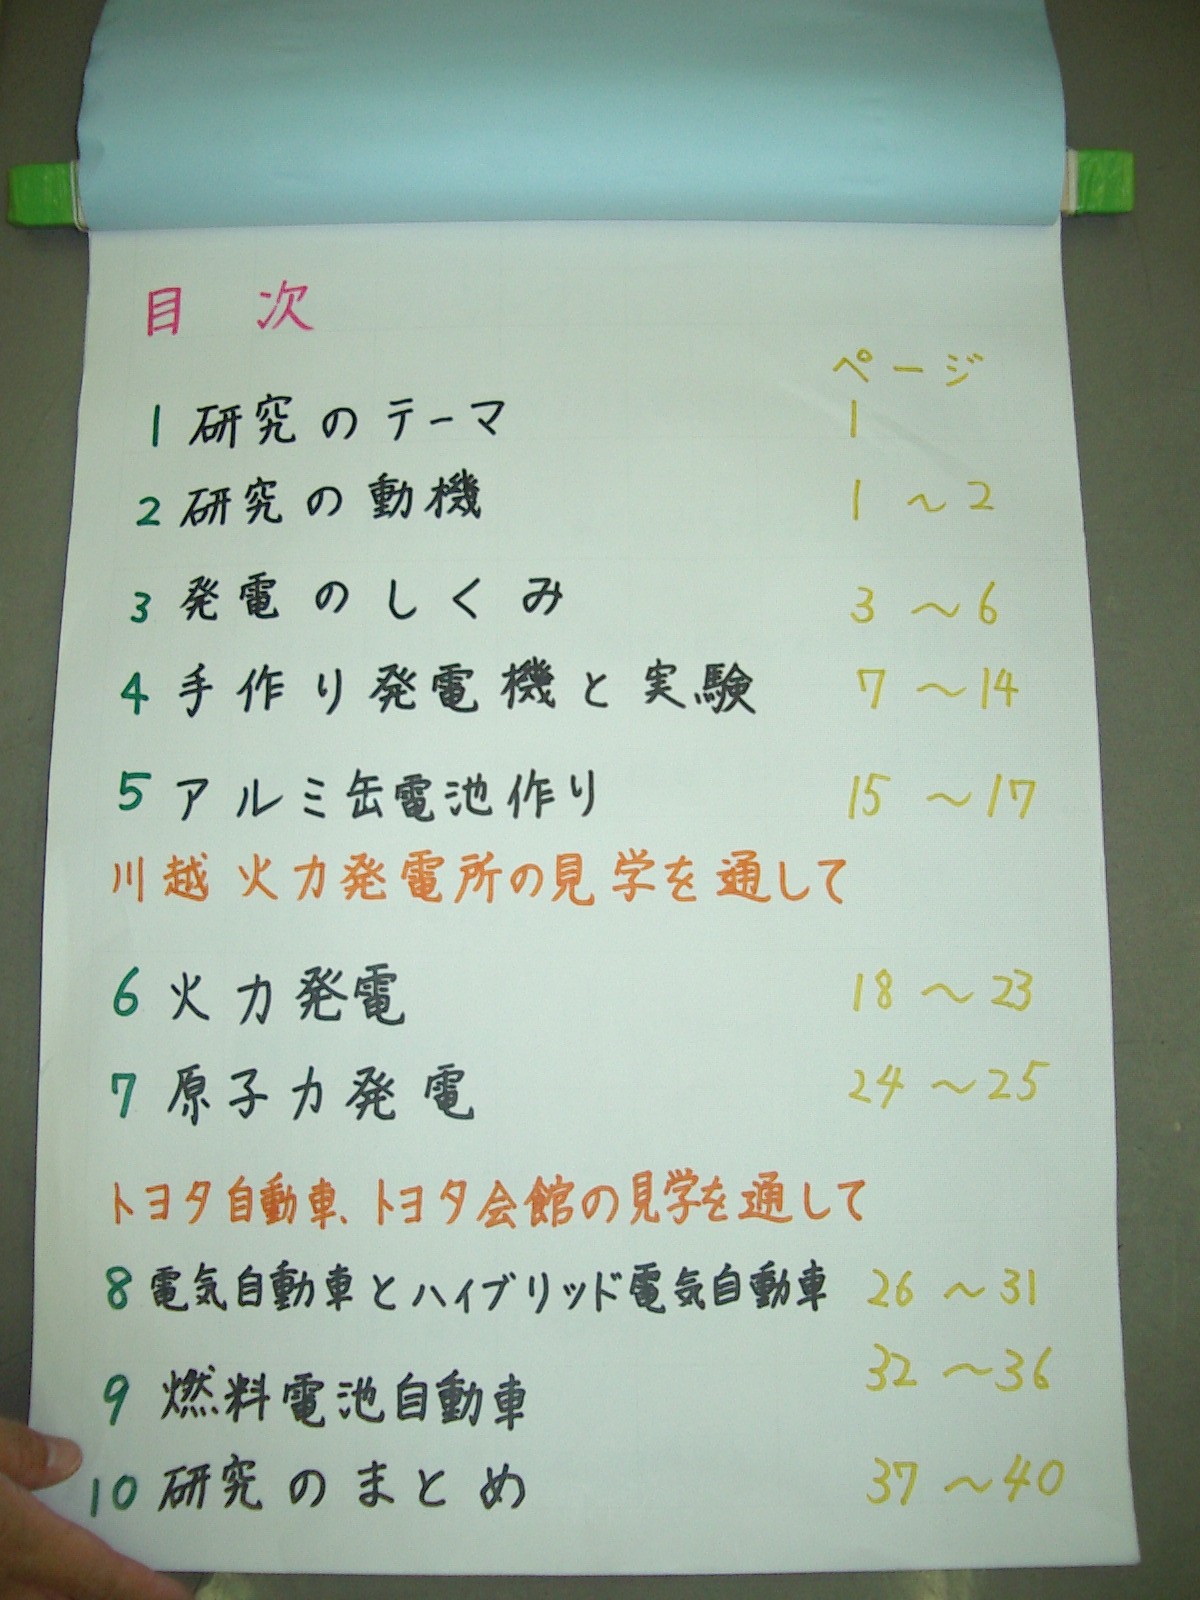 目次
ページ
1 研究のテーマ 1
2 研究の動機 1～2
3 発電のしくみ 3～6
4 手作り発電機と実験 7～14
5 アルミ缶電池作り 15～17
川越火力発電所の見学を通して
6 火力発電 18～23
7 原子力発電 24～25
トヨタ自動車、トヨタ会館の見学を通して
8 電気自動車とハイブリッド電気自動車 26～31
9 燃料電池自動車 32～36
10 研究のまとめ 37～40